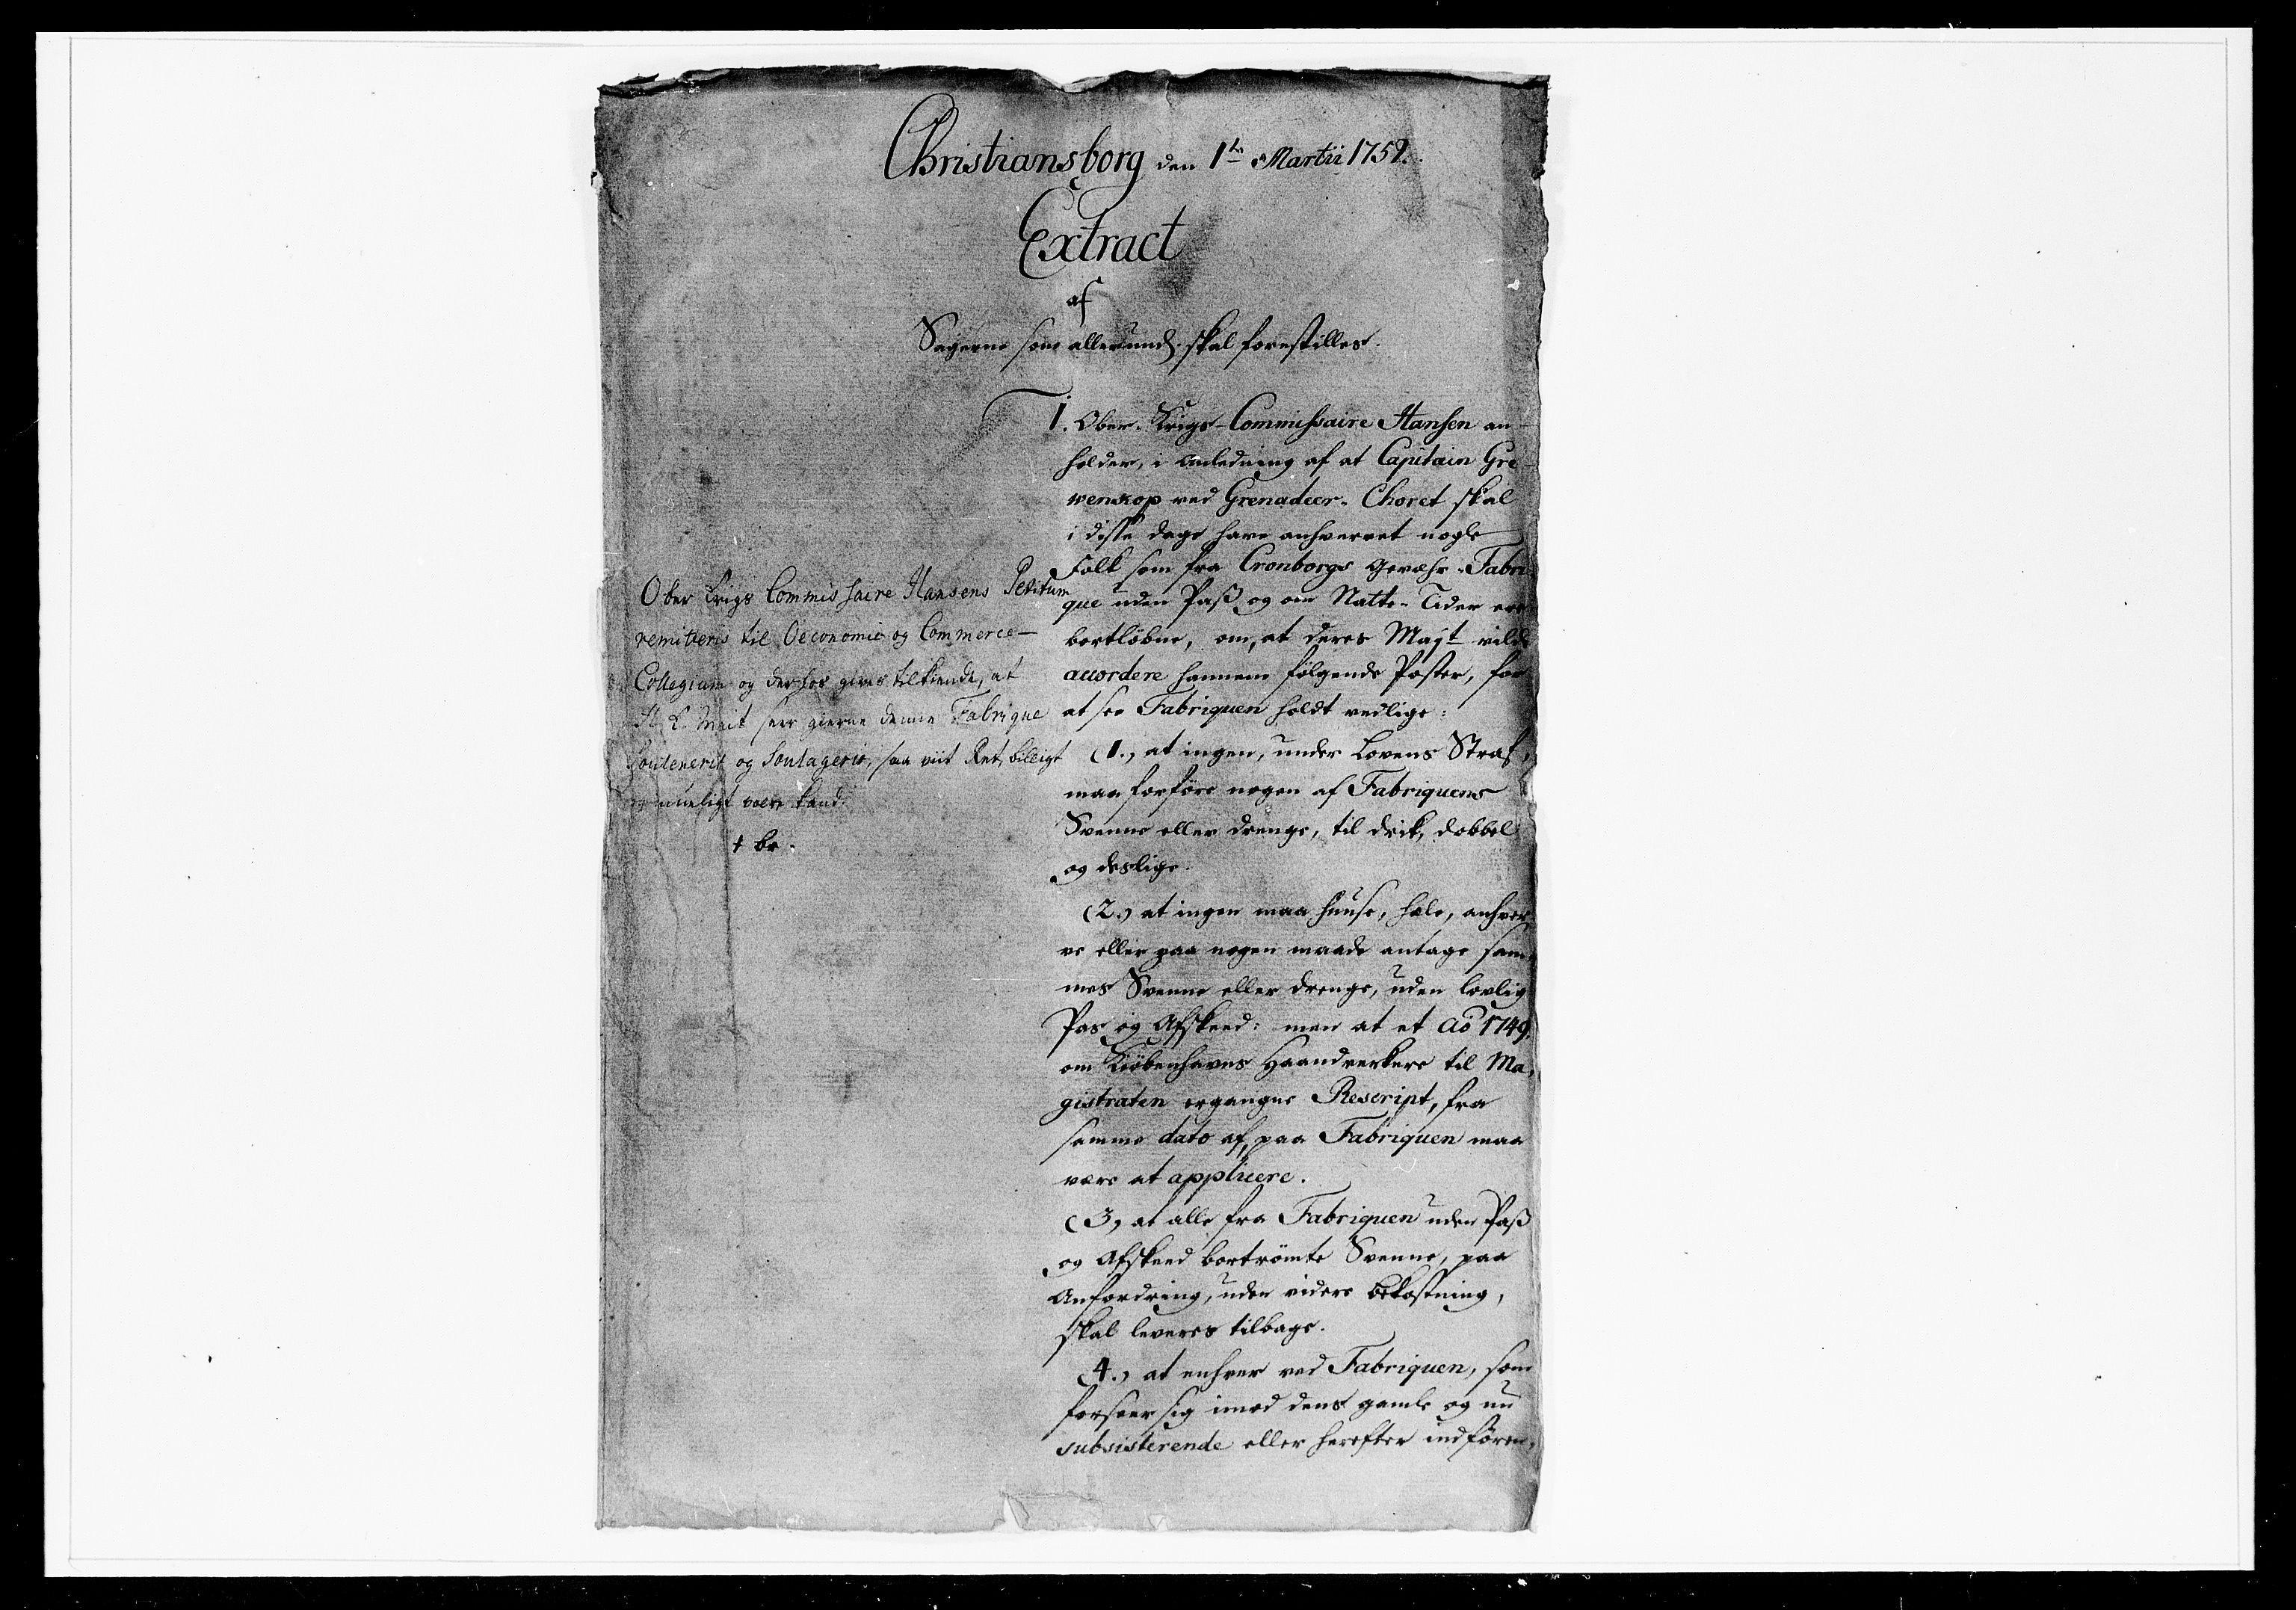 Christiansborg den 1te Martii 1759.
Extract
af
Sagerne som allerund. skal forestilles.
1. Ober-Krigs-Commissaire Hansen an-
holder, i Anledning af at Capitain Gre-
wenkop ved Grenadeer-Choret skal
i disse dage have anhvervet nogle
Folk som fra Cronborgs Gevæhr-Fabri-
que uden Pass og om Natte-Tider ere
bortløbne, om, at deres Majt vilde
accordere hannem følgende Poster, for
at see Fabriquen holdt vedlige:
(1.) at ingen, under Lovens Straf,
maa forføre nogen af Fabriquens
Svenne eller drenge, til drik, dobbel
og deslige.
(2.) at ingen maa huuse, hæle, anhver-
ve eller paa nogen maade antage sam-
mes Svenne eller drenge, uden lovlig
Pas og Afskeed: men at et Ao 1749.
om Kiøbenhavns Haandverkere til Ma-
gistraten ergangne Rescript, fra
samme dato af, paa Fabriquen maa
være at applicere.
(3.) at alle fra Fabriquen uden Pass
og Afskeed bortrømte Svenne, paa
Anfordring, uden videre bekostning,
skal leveres tilbage.
(4.) at enhver ved Fabriquen, som
forseer sig imod dens gamle og nu
subsisterende eller herefter indføren-
Ober Krigs Commissaire Hansens Petitum
remitteris til Oeconomie og Commerce-
Collegium og derhos gives tilkiende, at
H. K. Mait seer gierne denne Fabrique
souteneris og soulageris, saa viit Ret, billigt
og mueligt være kand.
+ br.